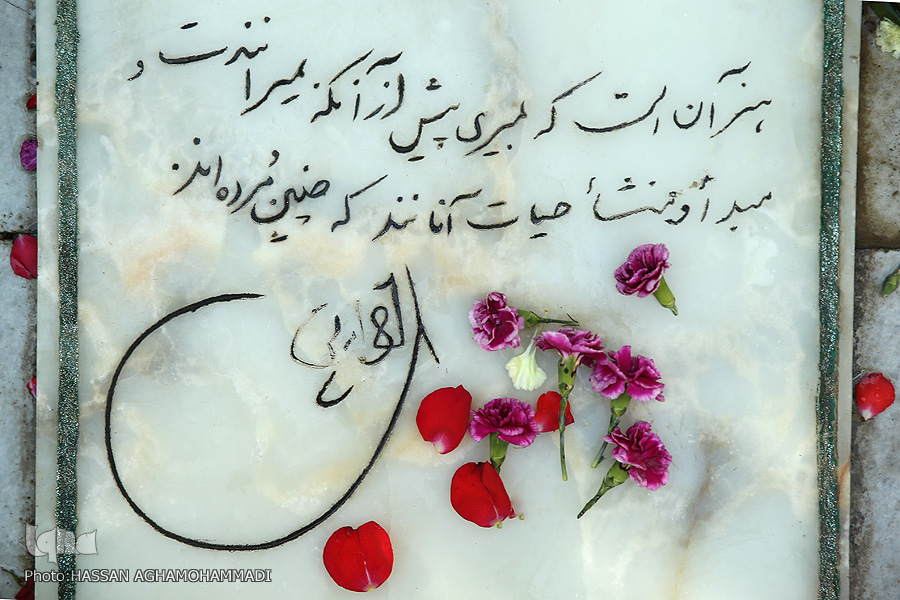 هنر آن است که بمیری پیش از آنکه بمیرانندت و
مبدأ و منشأ حیات آنانند که چنین مُرده‌اند.
iqna
Photo:HASSAN AGHAMOHAMMADI